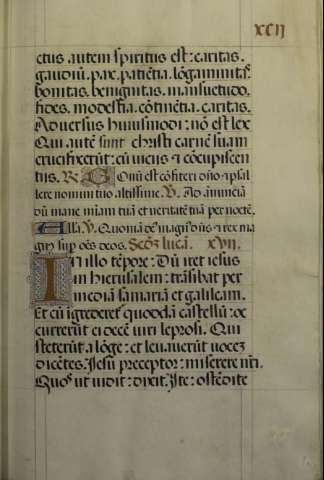 XCII
ctus . autem spiritus est : caritas .
gaudiū . pax . patiētia . lōgaminitas .
bonitas . benignitas . mansuetudo .
fides . modestia . cōtinētia . caritas .
Adversus huiusmodi : nō est lex
Qui autē sunt christi carnē suam
crucifixerūt : cū viciis et cōcupiscen
tiis . R. G Bonū est cōfiteri dño et psal
lere nomini tuo altissime . V. Ad annūciā
dū mane miam tuā et veritatē tuā per noctē .
Alla . V. Quoniā deᵒ magnᵒ dñs et rex ma
gnᵒ sup oēs deos . Secōȝ lucā . XVII.
In illo tēpore : Dū iret iesus
in hierusalem : trāsibat per
mediā samariā et galileam .
Et cū igrederetᵒ quoddā castellū : oc
currerūt ei decē viri leprosi . Qui
steterūt a lōge : et levaverūt vocē
dicētes . Iesu preceptor : miserere nrī .
Quoˢ ut vidit : dixit . Ite : ostēdite